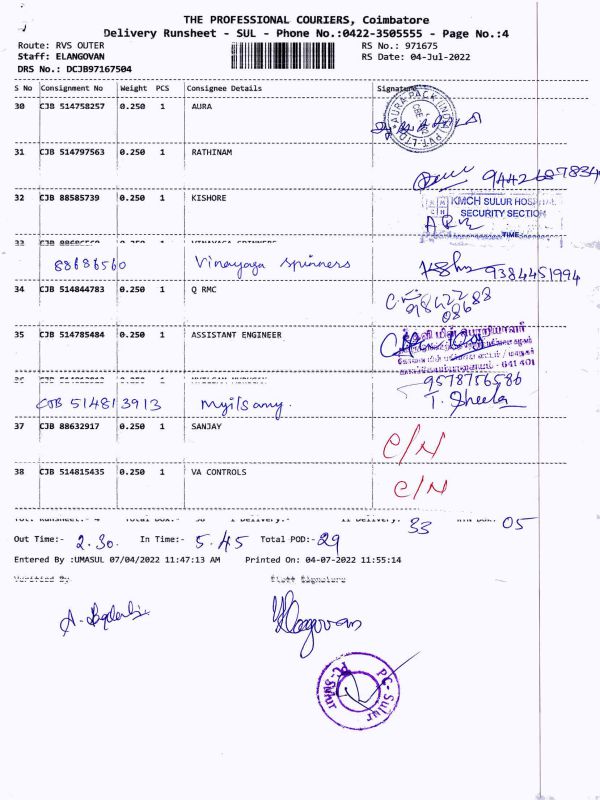 THE PROFESSIONAL COURIERS, Coimbatore
Delivery Runsheet - SUL - Phone No.:0422-3505555 - Page No.:4
Route: RVS OUTER RS No.: 971675
Staff: ELANGOVAN RS Date: 04-Jul-2022
DRS No.: DCJB97167504
S No Consignment No Weight PCS Consignee Details Signature
30 CJB 514758257 0.250 1 AURA
AURA PACK (IN PVT. LTD. CBE
31 CJB 514797563 0.250 1 RATHINAM
9442687834
32 CJB 88585739 0.250 1 KISHORE
KMCH SULUR HOSPITAL
SECURITY SECTION
TIME
33 VINAYAGA SPINNERS
88686560 Vinayaga spinners 9384451994
34 CJB 514844783 0.250 1 Q RMC
98422688
08688
35 CJB 514785484 0.250 1 ASSISTANT ENGINEER
641 401
9578756586
CJB 514813913 myilsamy. T. Sheela
37 CJB 88632917 0.250 1 SANJAY
C/N
38 CJB 514815435 0.250 1 VA CONTROLS
C/N
33 05
Out Time:- 2.30. In Time:- 5.45 Total POD:- 29
Entered By :UMASUL 07/04/2022 11:47:13 AM Printed On: 04-07-2022 11:55:14
Verified By Staff Signature
Elangovan
PC-Sulur PC-Sulur